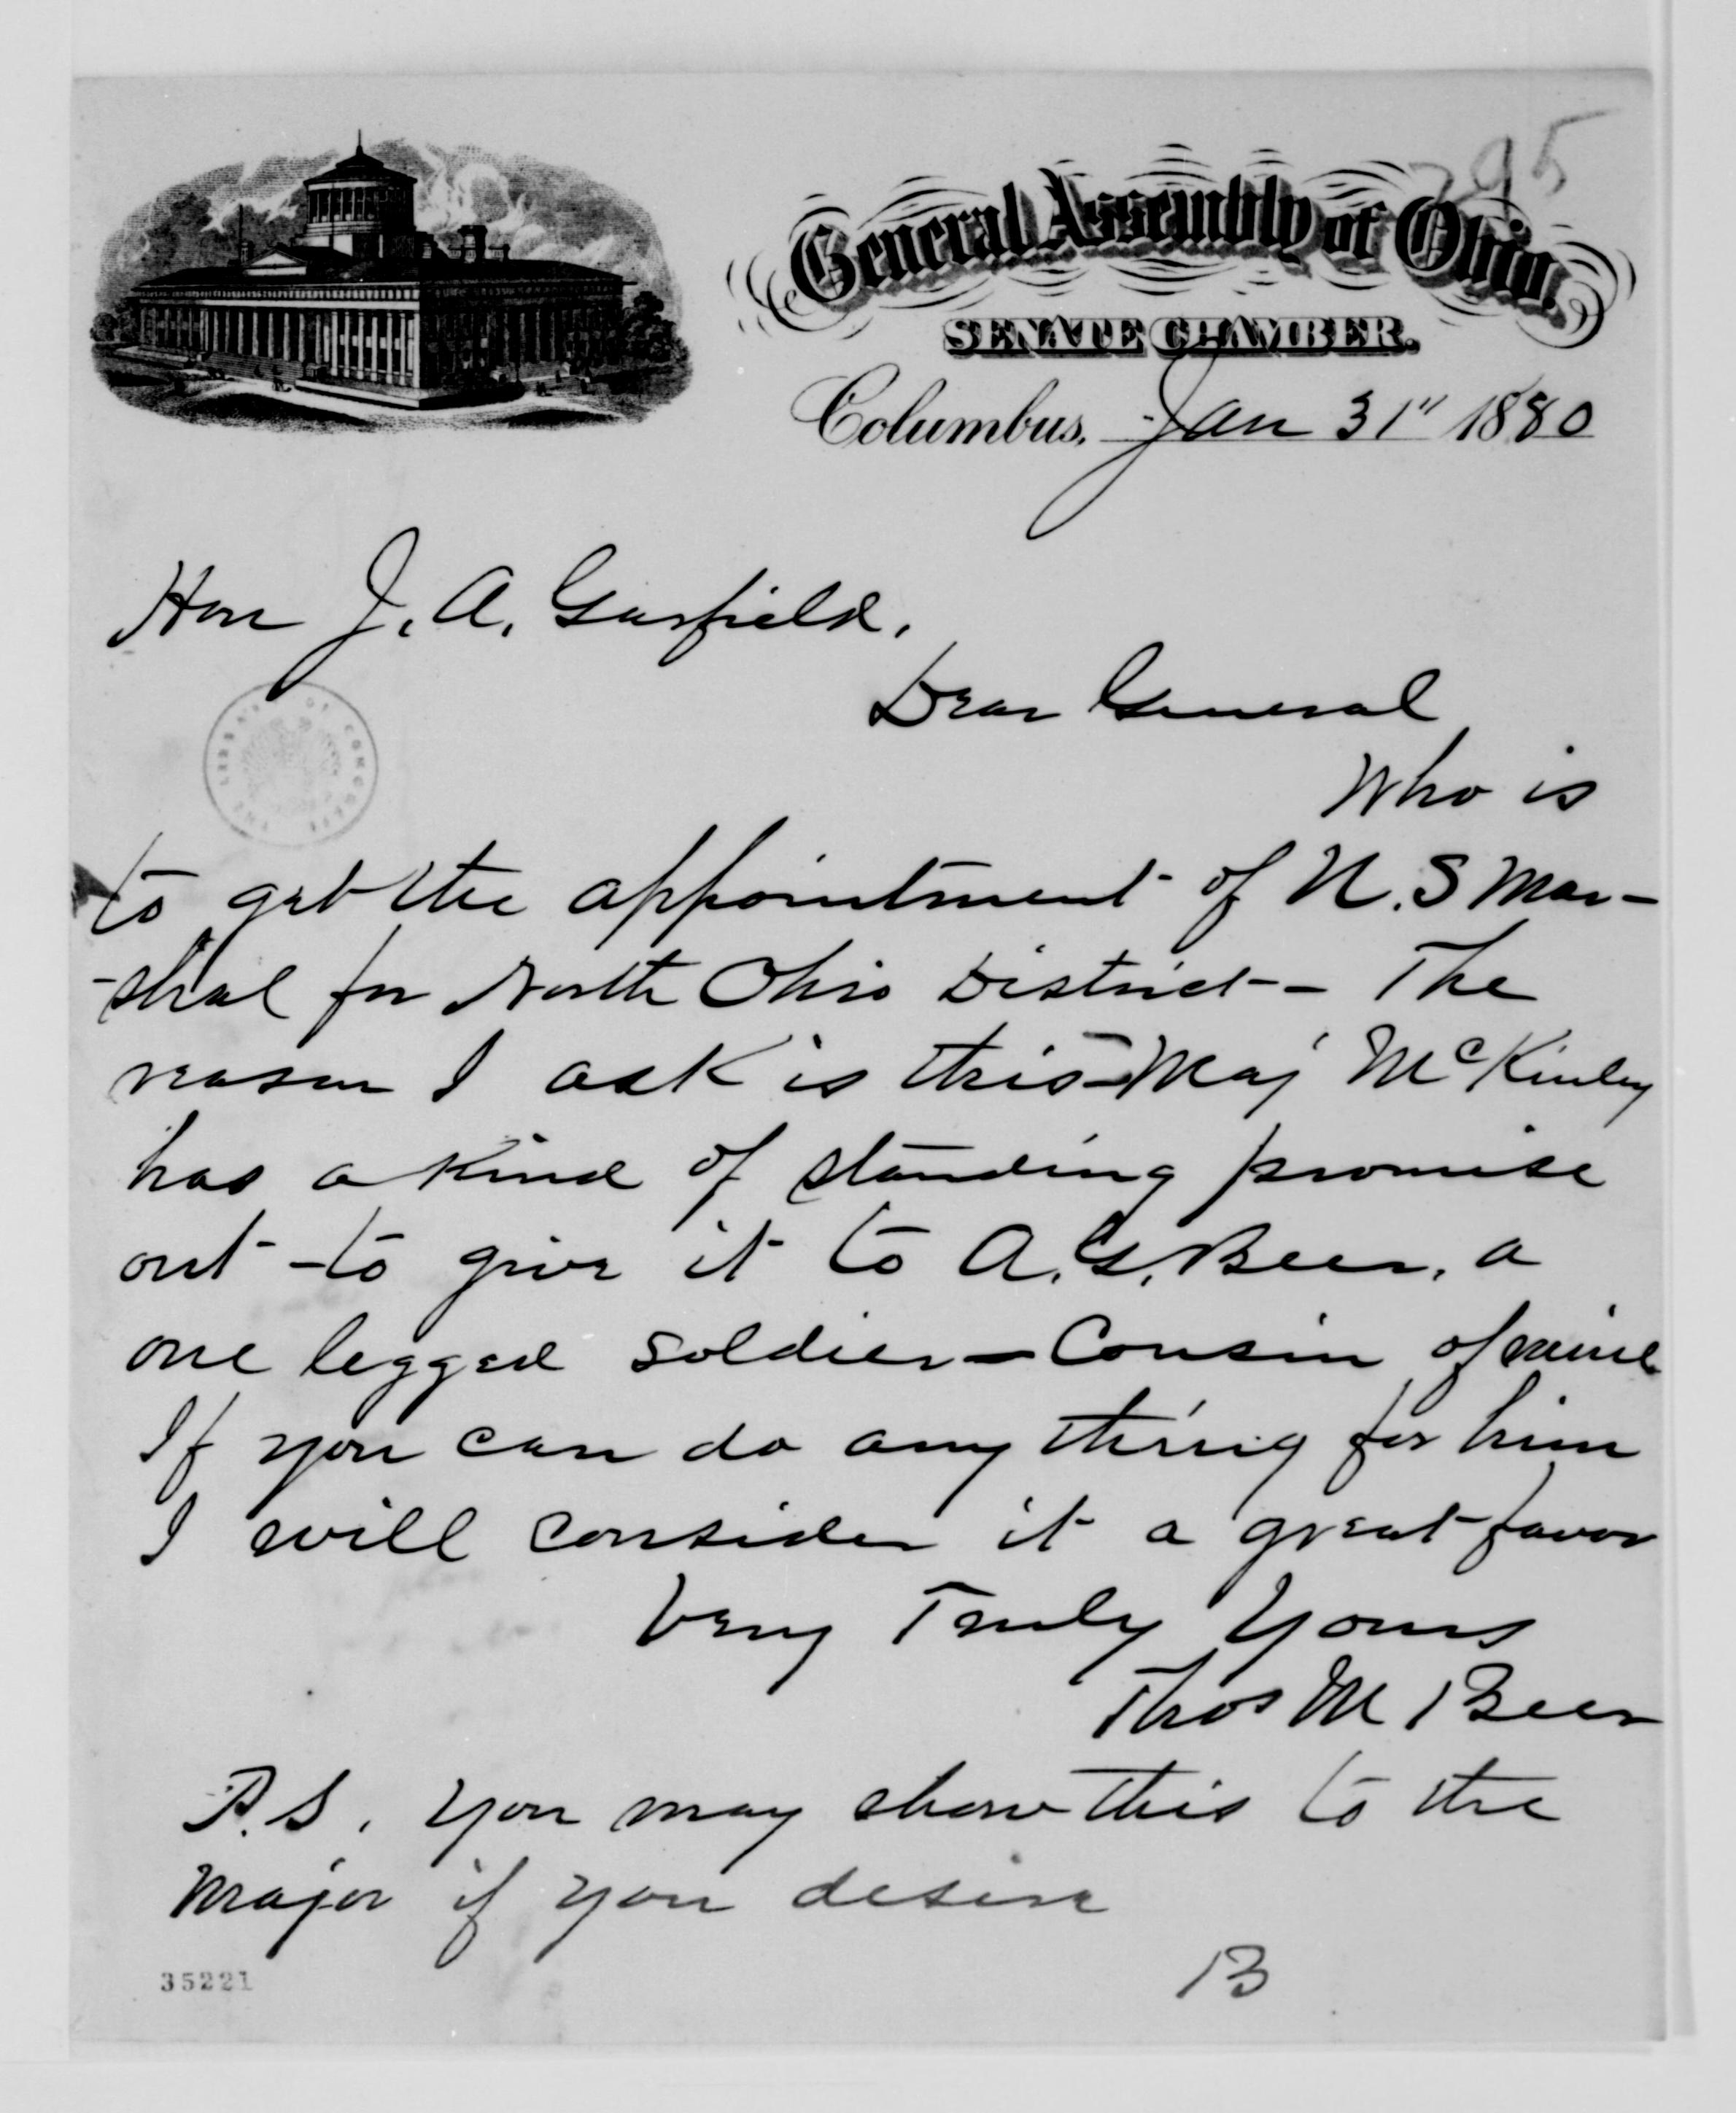 295
General Assembly of Ohio.
SENATE CHAMBER.
Columbus, Jan 31" 1880
Hon J. A. Garfield.
Dear General
THE LIBRARY OF CONGRESS
Who is
to get the appointment of U. S Mar-
-shal for North Ohio District - The
reason I ask is this - Maj McKinley
has a kind of standing promise
out - to give it to A. G. Beer, a
one legged soldier - Cousin of mine
If you can do any thing for him
I will consider it a great favor
Very Truly Yours
Thos M Beer
P.S. You may show this to the
Major if you desire
B
35221